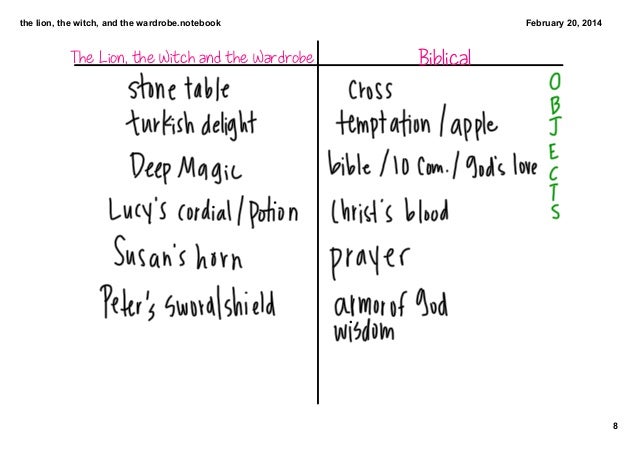 the lion, the witch, and the wardrobe.notebook February 20, 2014
The Lion, the Witch and the Wardrobe Biblical
stone table cross
turkish delight temptation / apple
Deep Magic bible / 10 Com. / god's love
Lucy's cordial / Potion Christ's blood
Susan's horn prayer
Peter's sword/shield armor of god
wisdom
OBJECTS
8